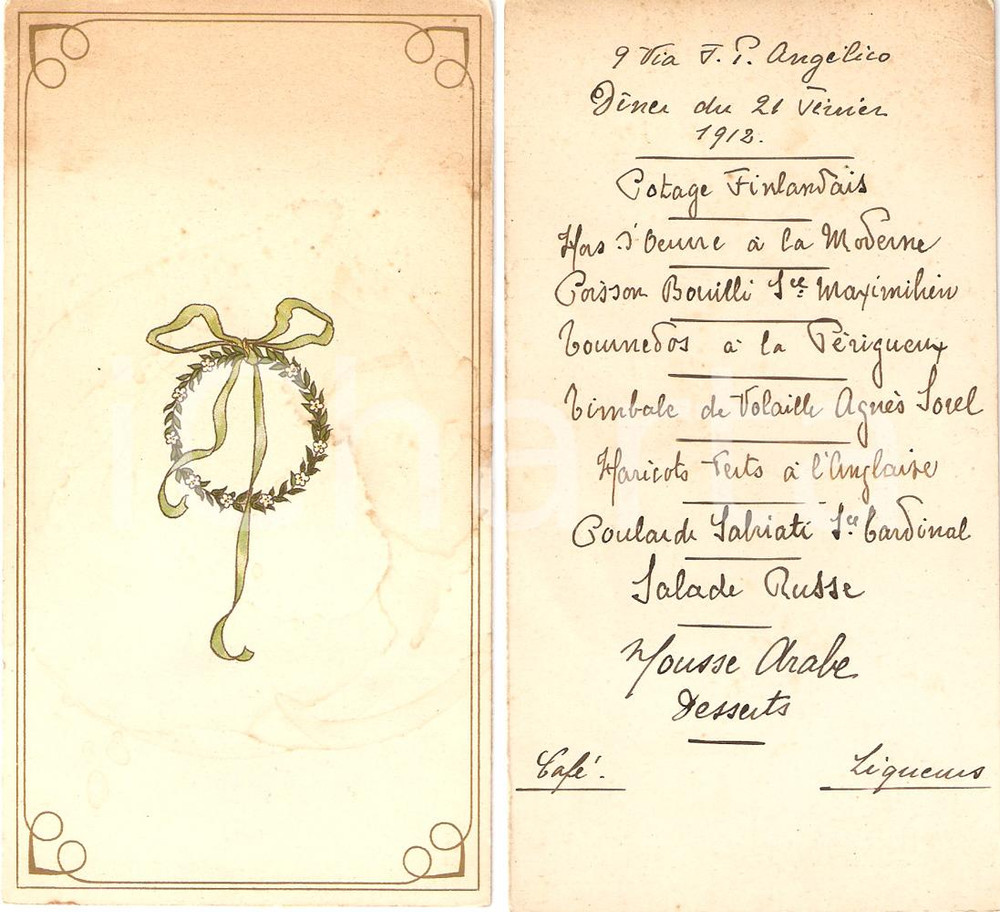 9 Via F. P. Angelico
Dîner du 21 Février
1912.
Potage Finlandais
Hors d'Oeuvre à la Moderne
Poisson Bouilli Sce Maximilien
Tournedos à la Périgueux
Timbale de Volaille Agnès Sorel
Haricots Verts à l'Anglaise
Poularde Sce Cardinal
Salade Russe
Mousse Arabe
Desserts
Café. Liqueurs